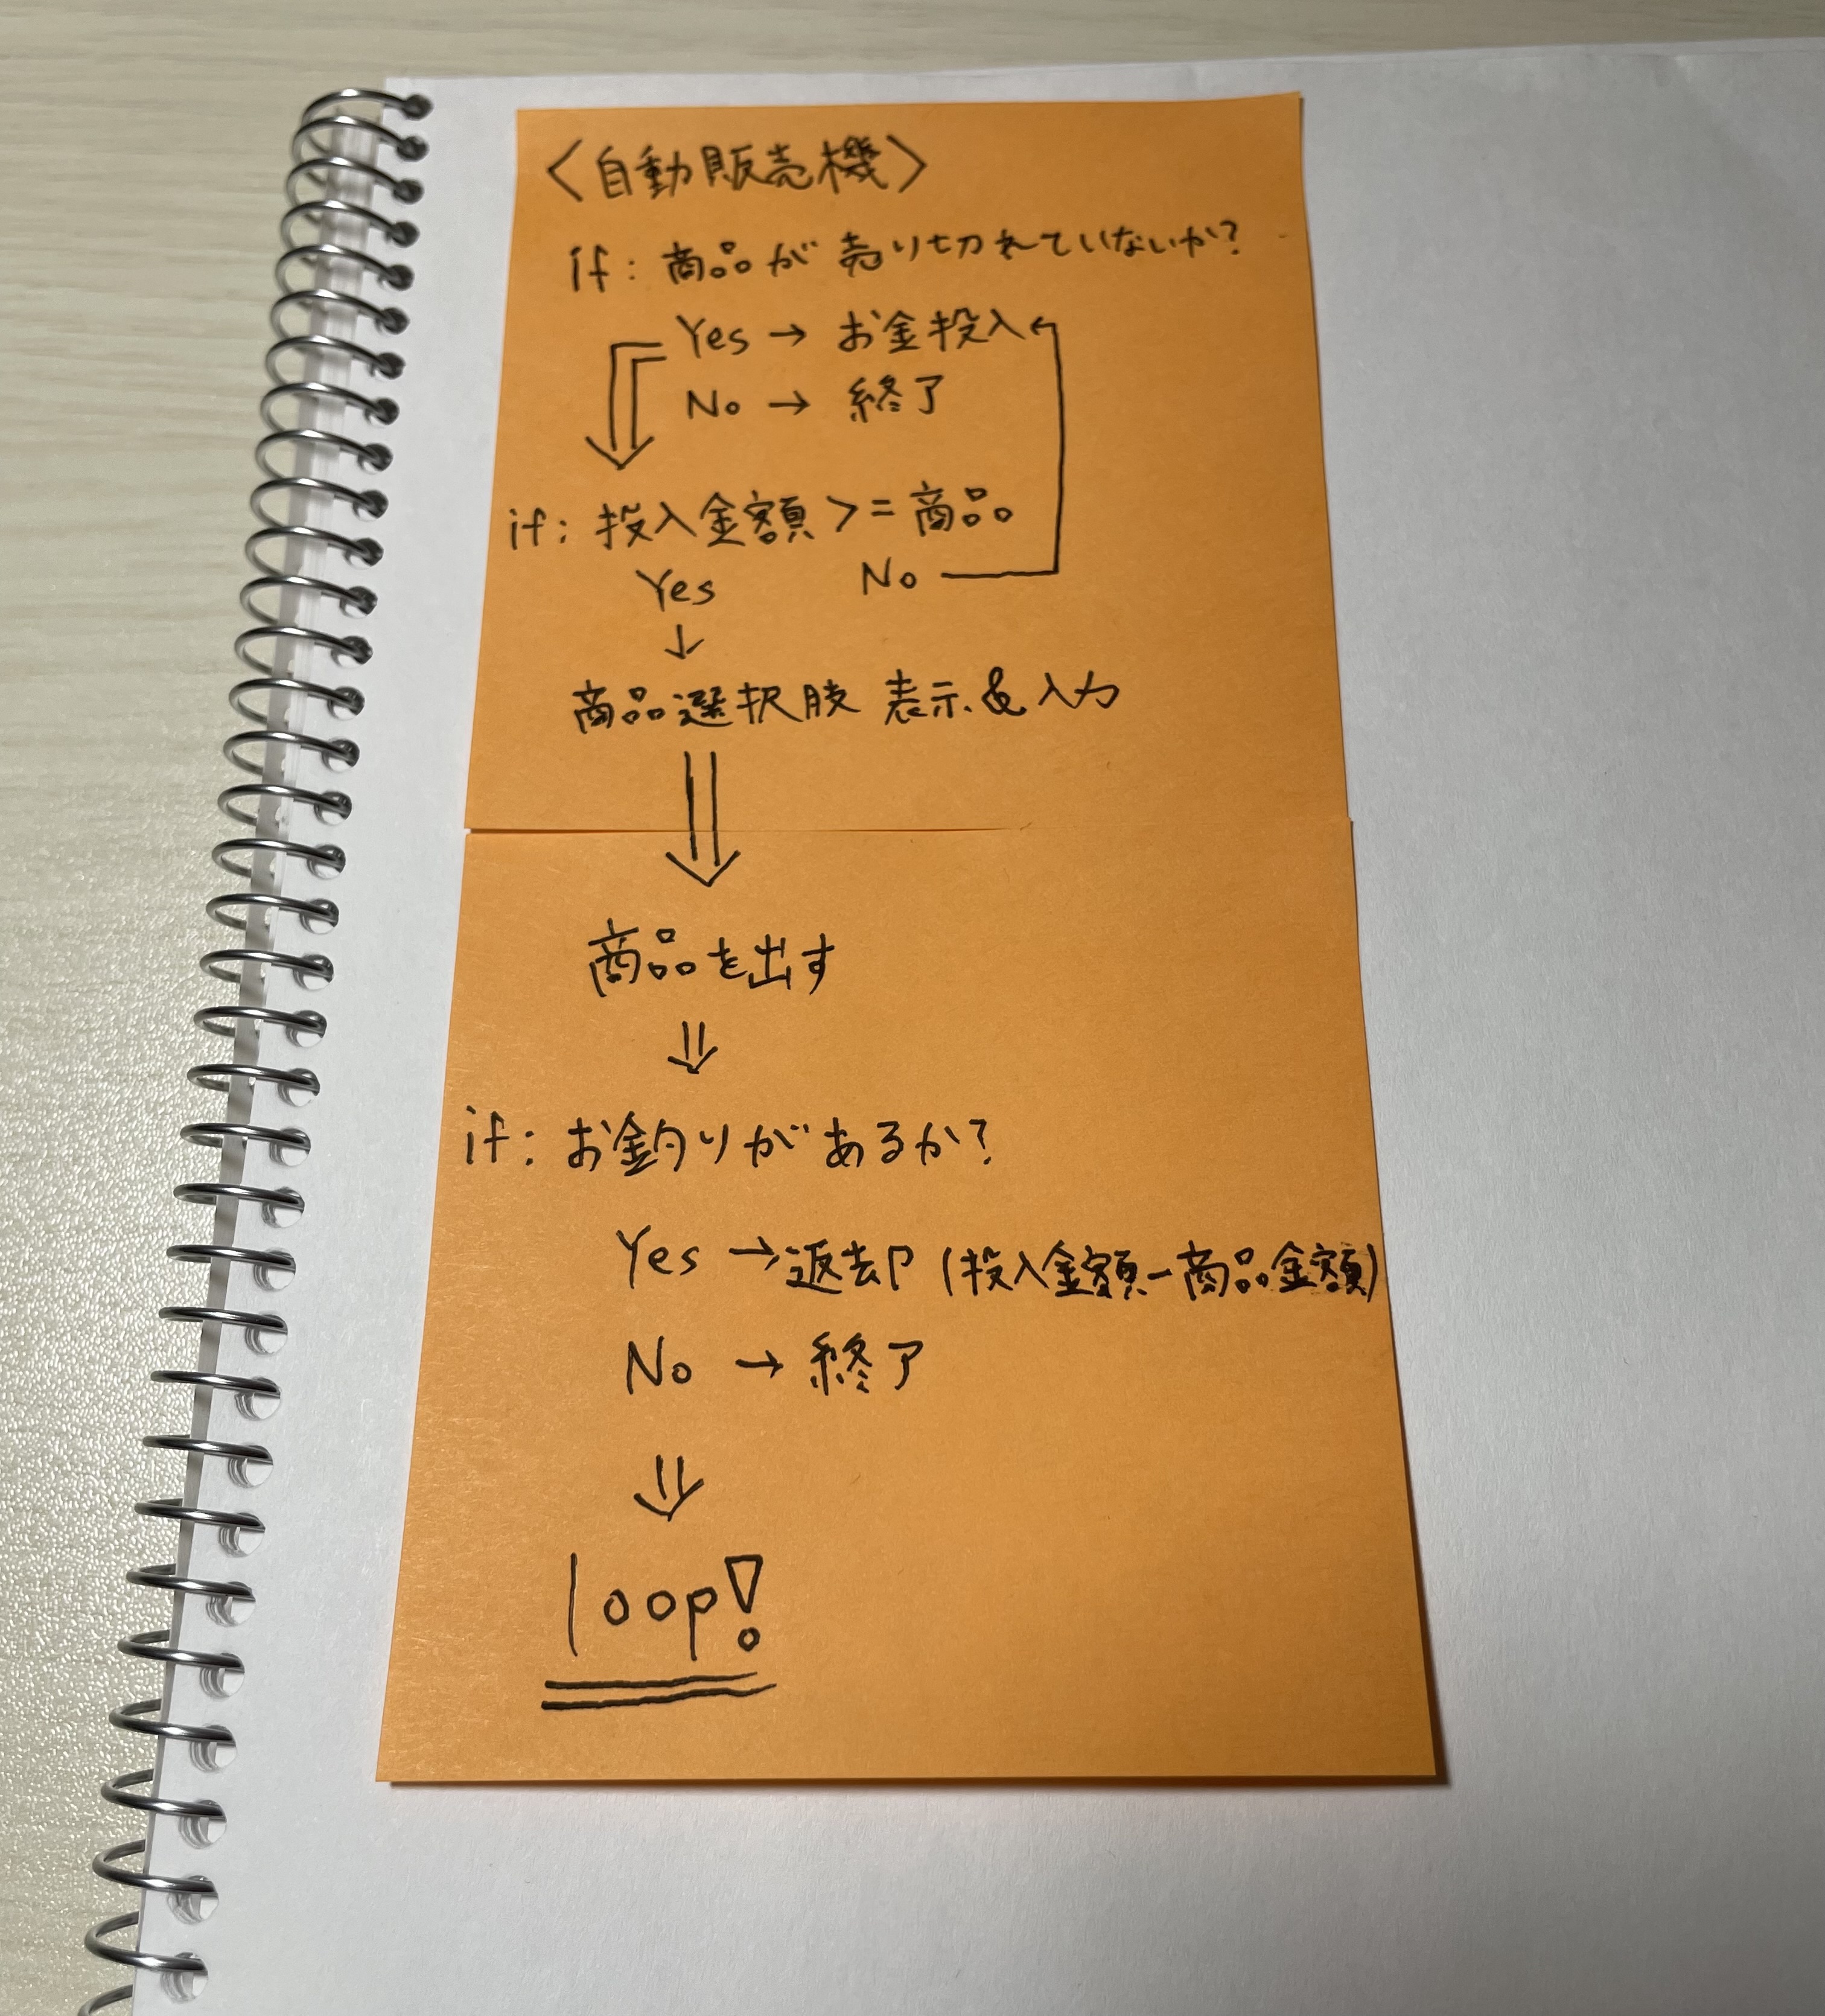 〈自動販売機〉
if: 商品が売り切れていないか?
Yes → お金投入
No → 終了
if: 投入金額 >= 商品
Yes No
↓
商品選択肢 表示&入力
商品を出す
if: お釣りがあるか?
Yes → 返却 (投入金額-商品金額)
No → 終了
loop!